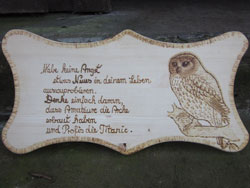 Habe keine Angst
etwas Neues in deinem Leben
auszuprobieren.
Denke einfach daran,
dass Amateure die Arche
gebaut haben
und Profis die Titanic.